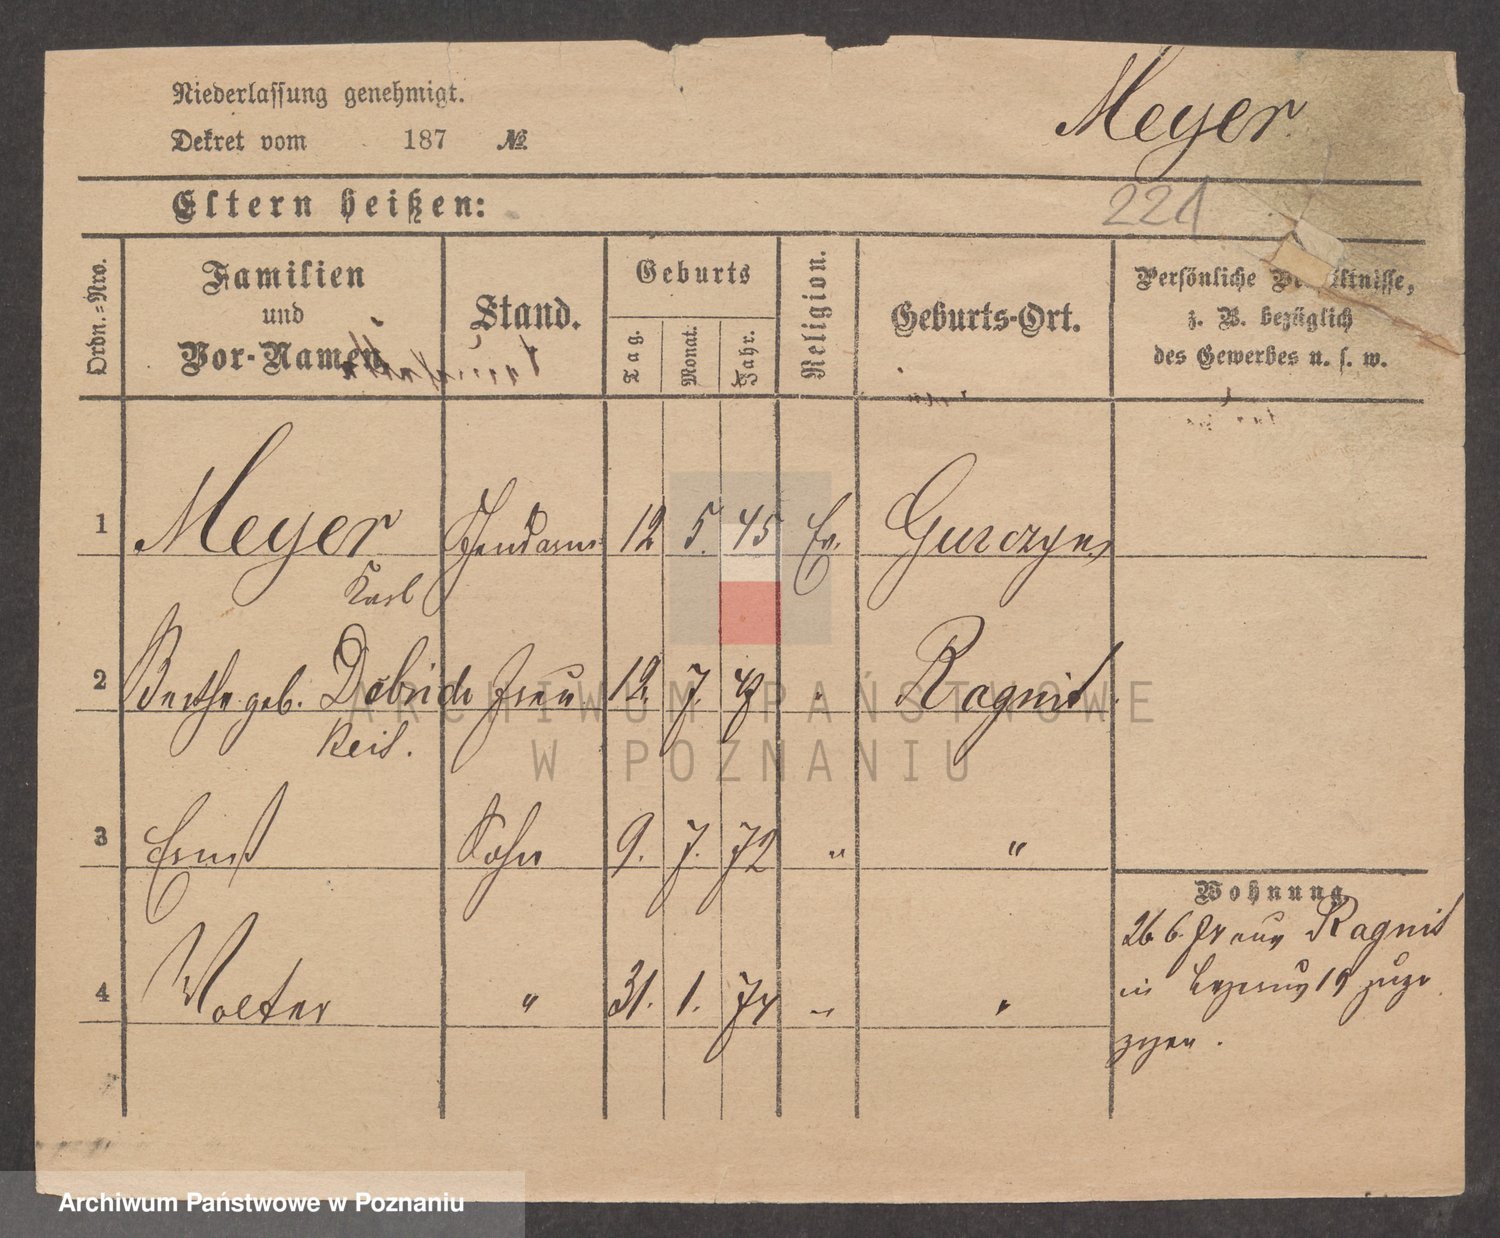 Niederlassung genehmigt.
Meyer
Dekret vom 187 №
221
Eltern heißen:
Ordn.=Nro.
Familien und Vor-Namen
Stand.
Geburts
Tag.
Monat.
Jahr.
Religion.
Geburts-Ort.
Persönliche
z. B. bezüglich
des Gewerbes u. s. w.
1 Meyer Gendarm 12 5. 45 Ev.
Karl
2 Berthe geb. Frau 12. 7. Ragnit
3 Ernst Sohn 9. 7. 72 " "
Wohnung
26 6. Ragnit
4 Walter " 31. 1. 74 " "
in 19
ARCHIWUM PAŃSTWOWE
W POZNANIU
Archiwum Państwowe w Poznaniu